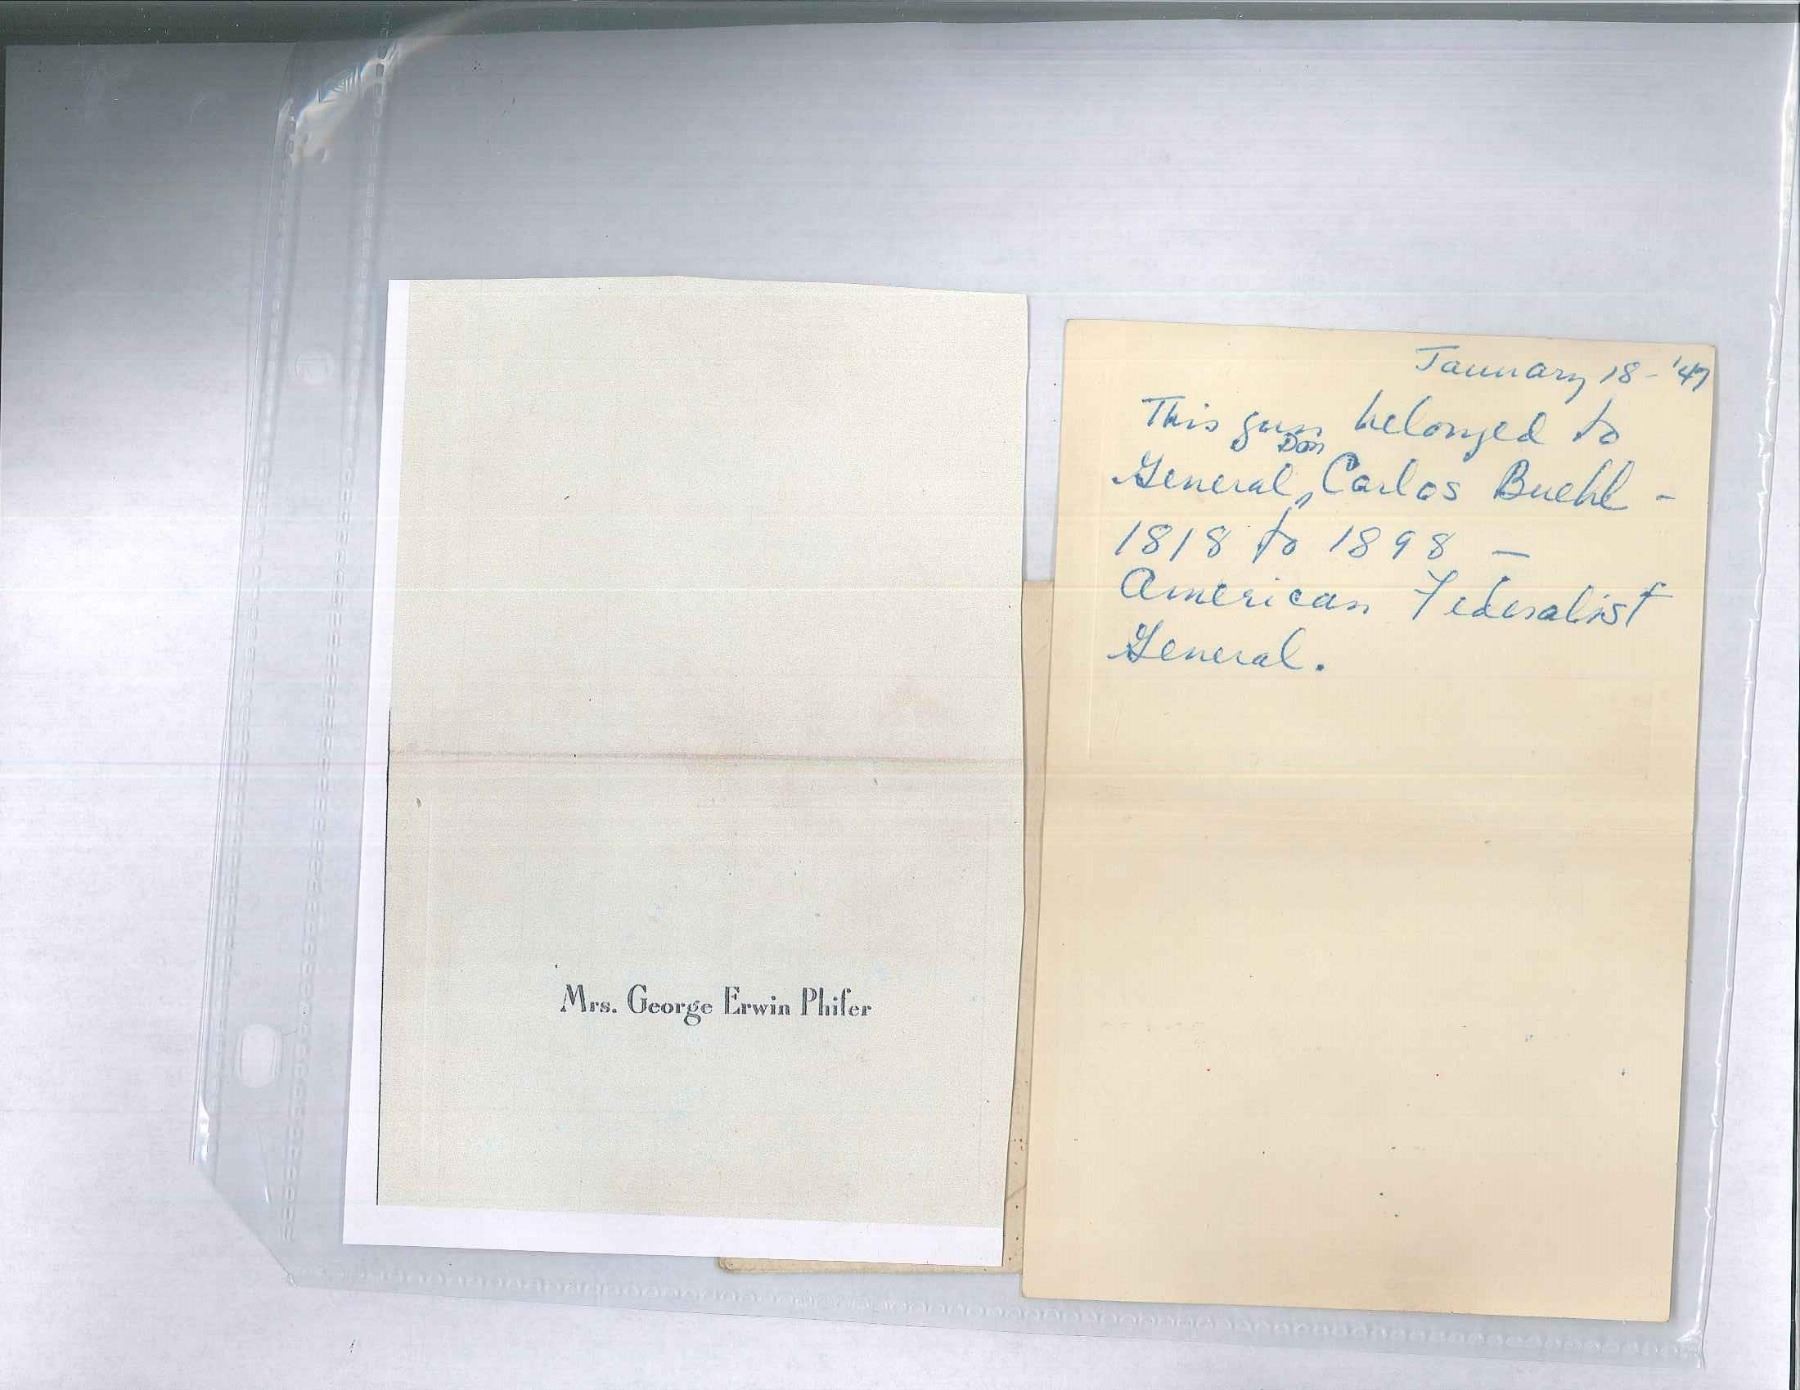 Mrs. George Erwin Phifer
January 18 - '47
This gun belonged to
General, Don Carlos Buehl -
1818 to 1898 -
American Federalist
General.